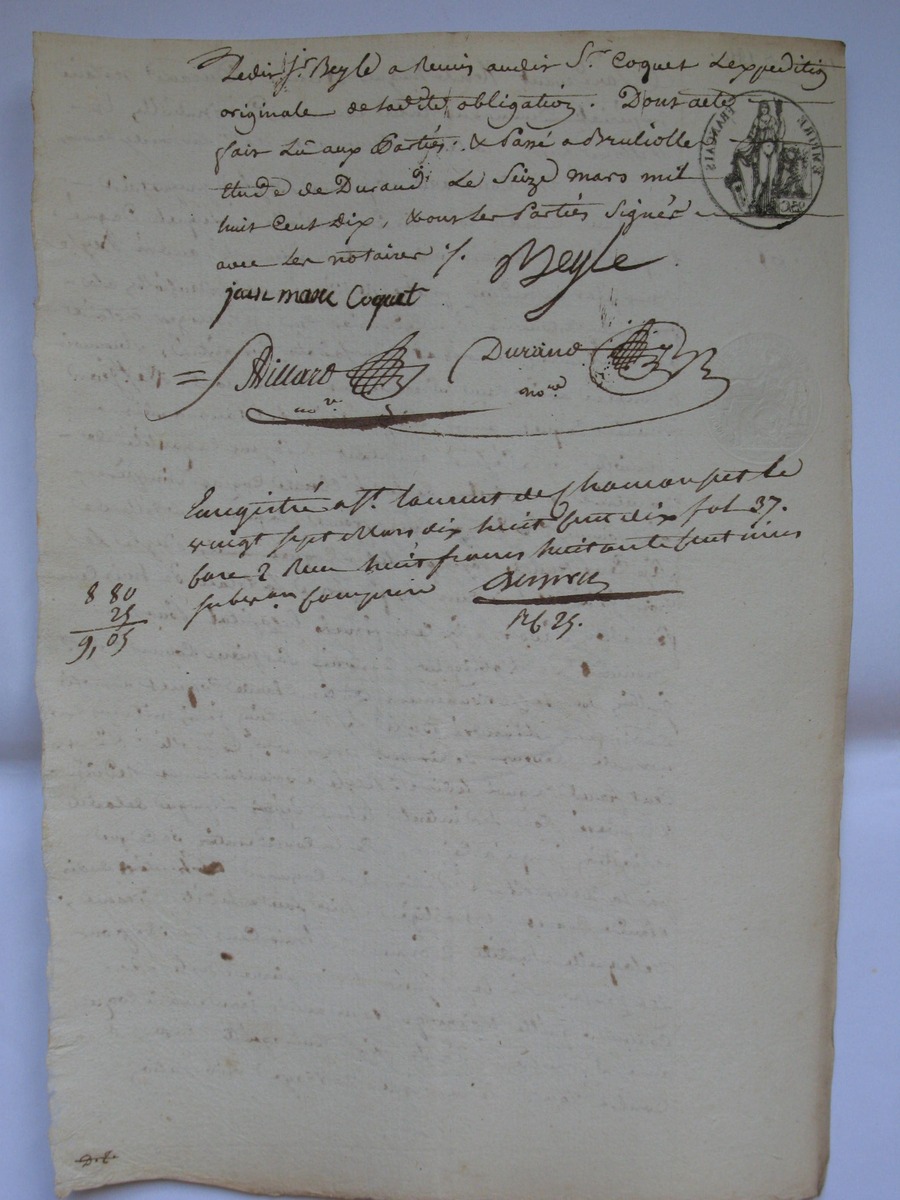 Ledit Sr. Beyle a Remis audit Sr. Coquet L'expedition
originale de ladite obligation. Dont acte
fait Lû aux Parties. & Passé a Brullioles
Etude de Durand, Le Seize mars mil
huit Cent dix, & ont les Parties Signés
avec les notaires /.
Beyle
jean marie Coquet
Durand
nore
= Billard
nore
Enregistré a St. laurent de Chamousset le
vingt sept Mars dix huit Cent dix fol 37.
Case 2 Recu huit francs huitante Centimes
subvon Comprise
Rf 25.
8 80
25
9,05
EMPIRE FRANCAIS